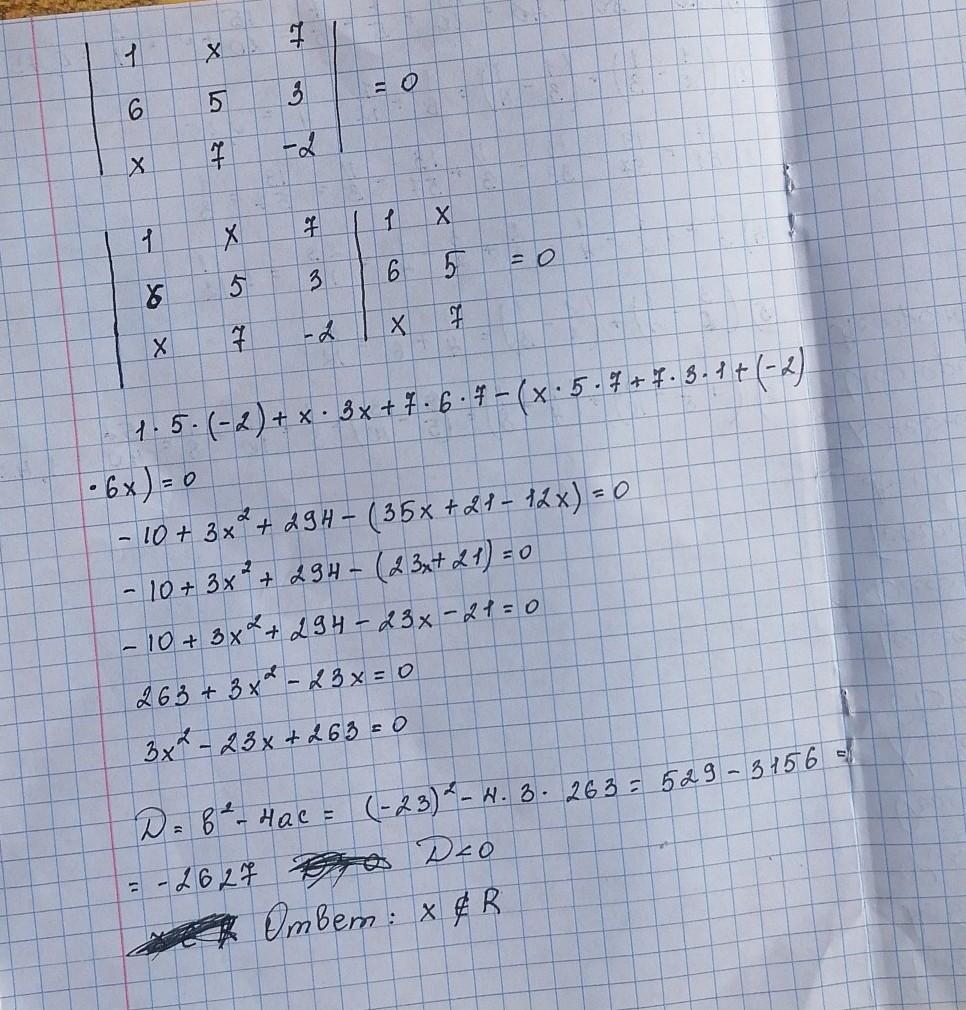 | 1 x 7 |
| 6 5 3 | = 0
| x 7 -2 |
| 1 x 7 | 1 x
| 6 5 3 | 6 5 = 0
| x 7 -2 | x 7
1 · 5 · (-2) + x · 3x + 7 · 6 · 7 - (x · 5 · 7 + 7 · 3 · 1 + (-2)
· 6x) = 0
- 10 + 3x² + 294 - (35x + 21 - 12x) = 0
- 10 + 3x² + 294 - (23x + 21) = 0
- 10 + 3x² + 294 - 23x - 21 = 0
263 + 3x² - 23x = 0
3x² - 23x + 263 = 0
D = b² - 4ac = (-23)² - 4 · 3 · 263 = 529 - 3156 =
= -2627 D < 0
Ответ: x ∉ R